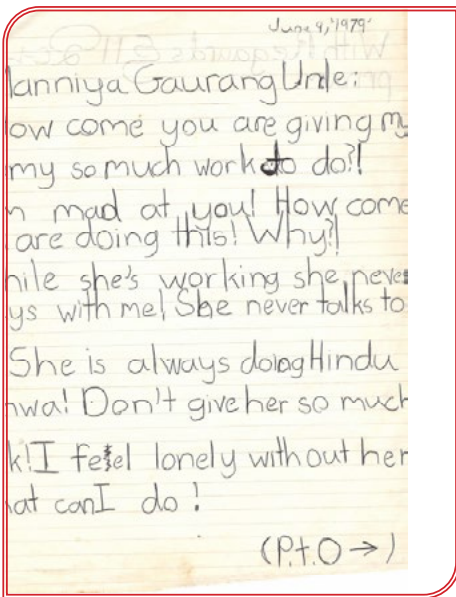 June 9, '1979'
anniya Gaurang Unle:
ow come you are giving my
my so much work to do?!
mad at you! How come
are doing this! Why?!
hile she's working she never
ys with me! She never talks to
She is always doing Hindu
hwa! Don't give her so much
k! I feel lonely without her
at can I do!
(P.t.O →)